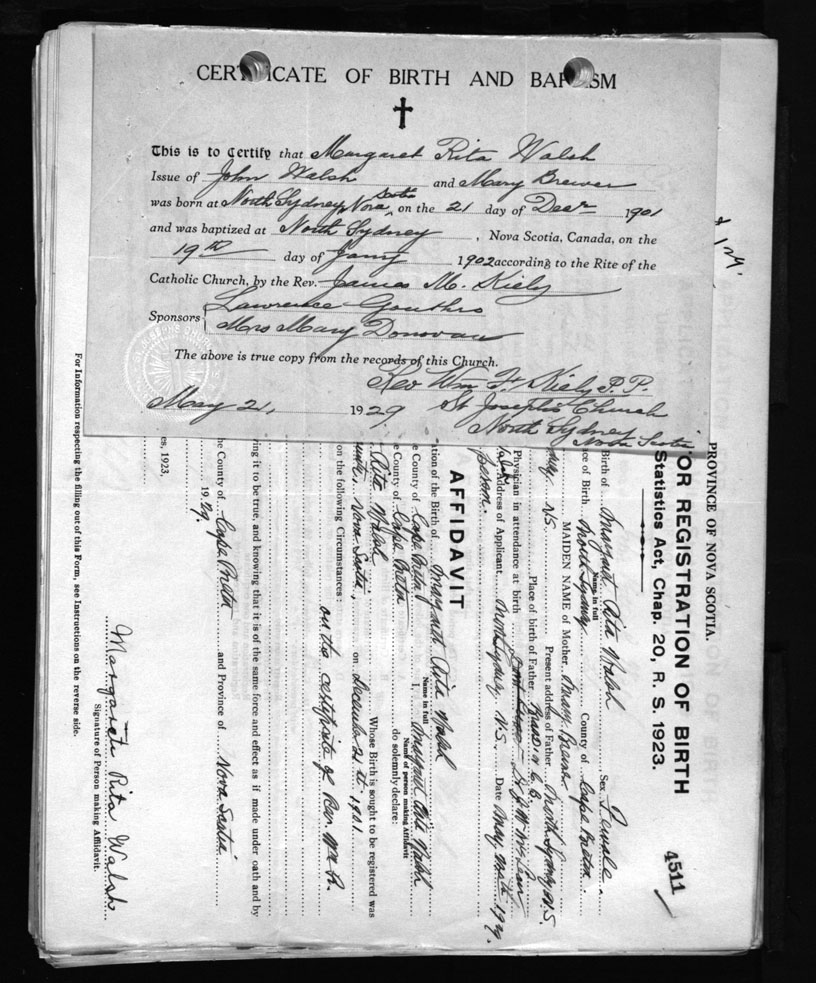 CERTIFICATE OF BIRTH AND BAPTISM
This is to Certify that Margaret Rita Walsh
Issue of John Walsh and Mary Brewer
was born at North Sydney, Nova Scotia, on the 21 day of Decr 1901
and was baptized at North Sydney, Nova Scotia, Canada, on the
19th day of Jany 1902 according to the Rite of the
Catholic Church, by the Rev. James M. Kiely
Sponsors { Lawrence Gouthro
Mrs Mary Donovan
The above is true copy from the records of this Church.
Rev Wm F. Kiely P.P.
May 21, 1929 St Joseph's Church
North Sydney
Nova Scotia
PROVINCE OF NOVA SCOTIA.
OR REGISTRATION OF BIRTH
Statistics Act, Chap. 20, R. S. 1923.
4511
Birth of Margaret Rita Walsh Sex Female
Name in full
ce of Birth North Sydney County of Cape Breton
MAIDEN NAME of Mother Mary Brewer
N.S. Present address of Father North Sydney N.S.
Place of birth of Father
Physician in attendance at birth
Address of Applicant North Sydney N.S. Date May
person.
AFFIDAVIT
ation of the Birth of Margaret Rita Walsh
Name in full
he County of Cape Breton I, Margaret Rita Walsh
Name of person making Affidavit
he County of Cape Breton do solemnly declare:
Rita Walsh Whose Birth is sought to be registered was
Nova Scotia, on December 21st 1901
on the following Circumstances:
on the certificate of Rev.
ring it to be true, and knowing that it is of the same force and effect as if made under oath and by
he County of Cape Breton and Province of Nova Scotia
1929.
es, 1923,
Margarete Rita Walsh
Signature of Person making Affidavit.
For Information respecting the filling out of this Form, see Instructions on the reverse side.